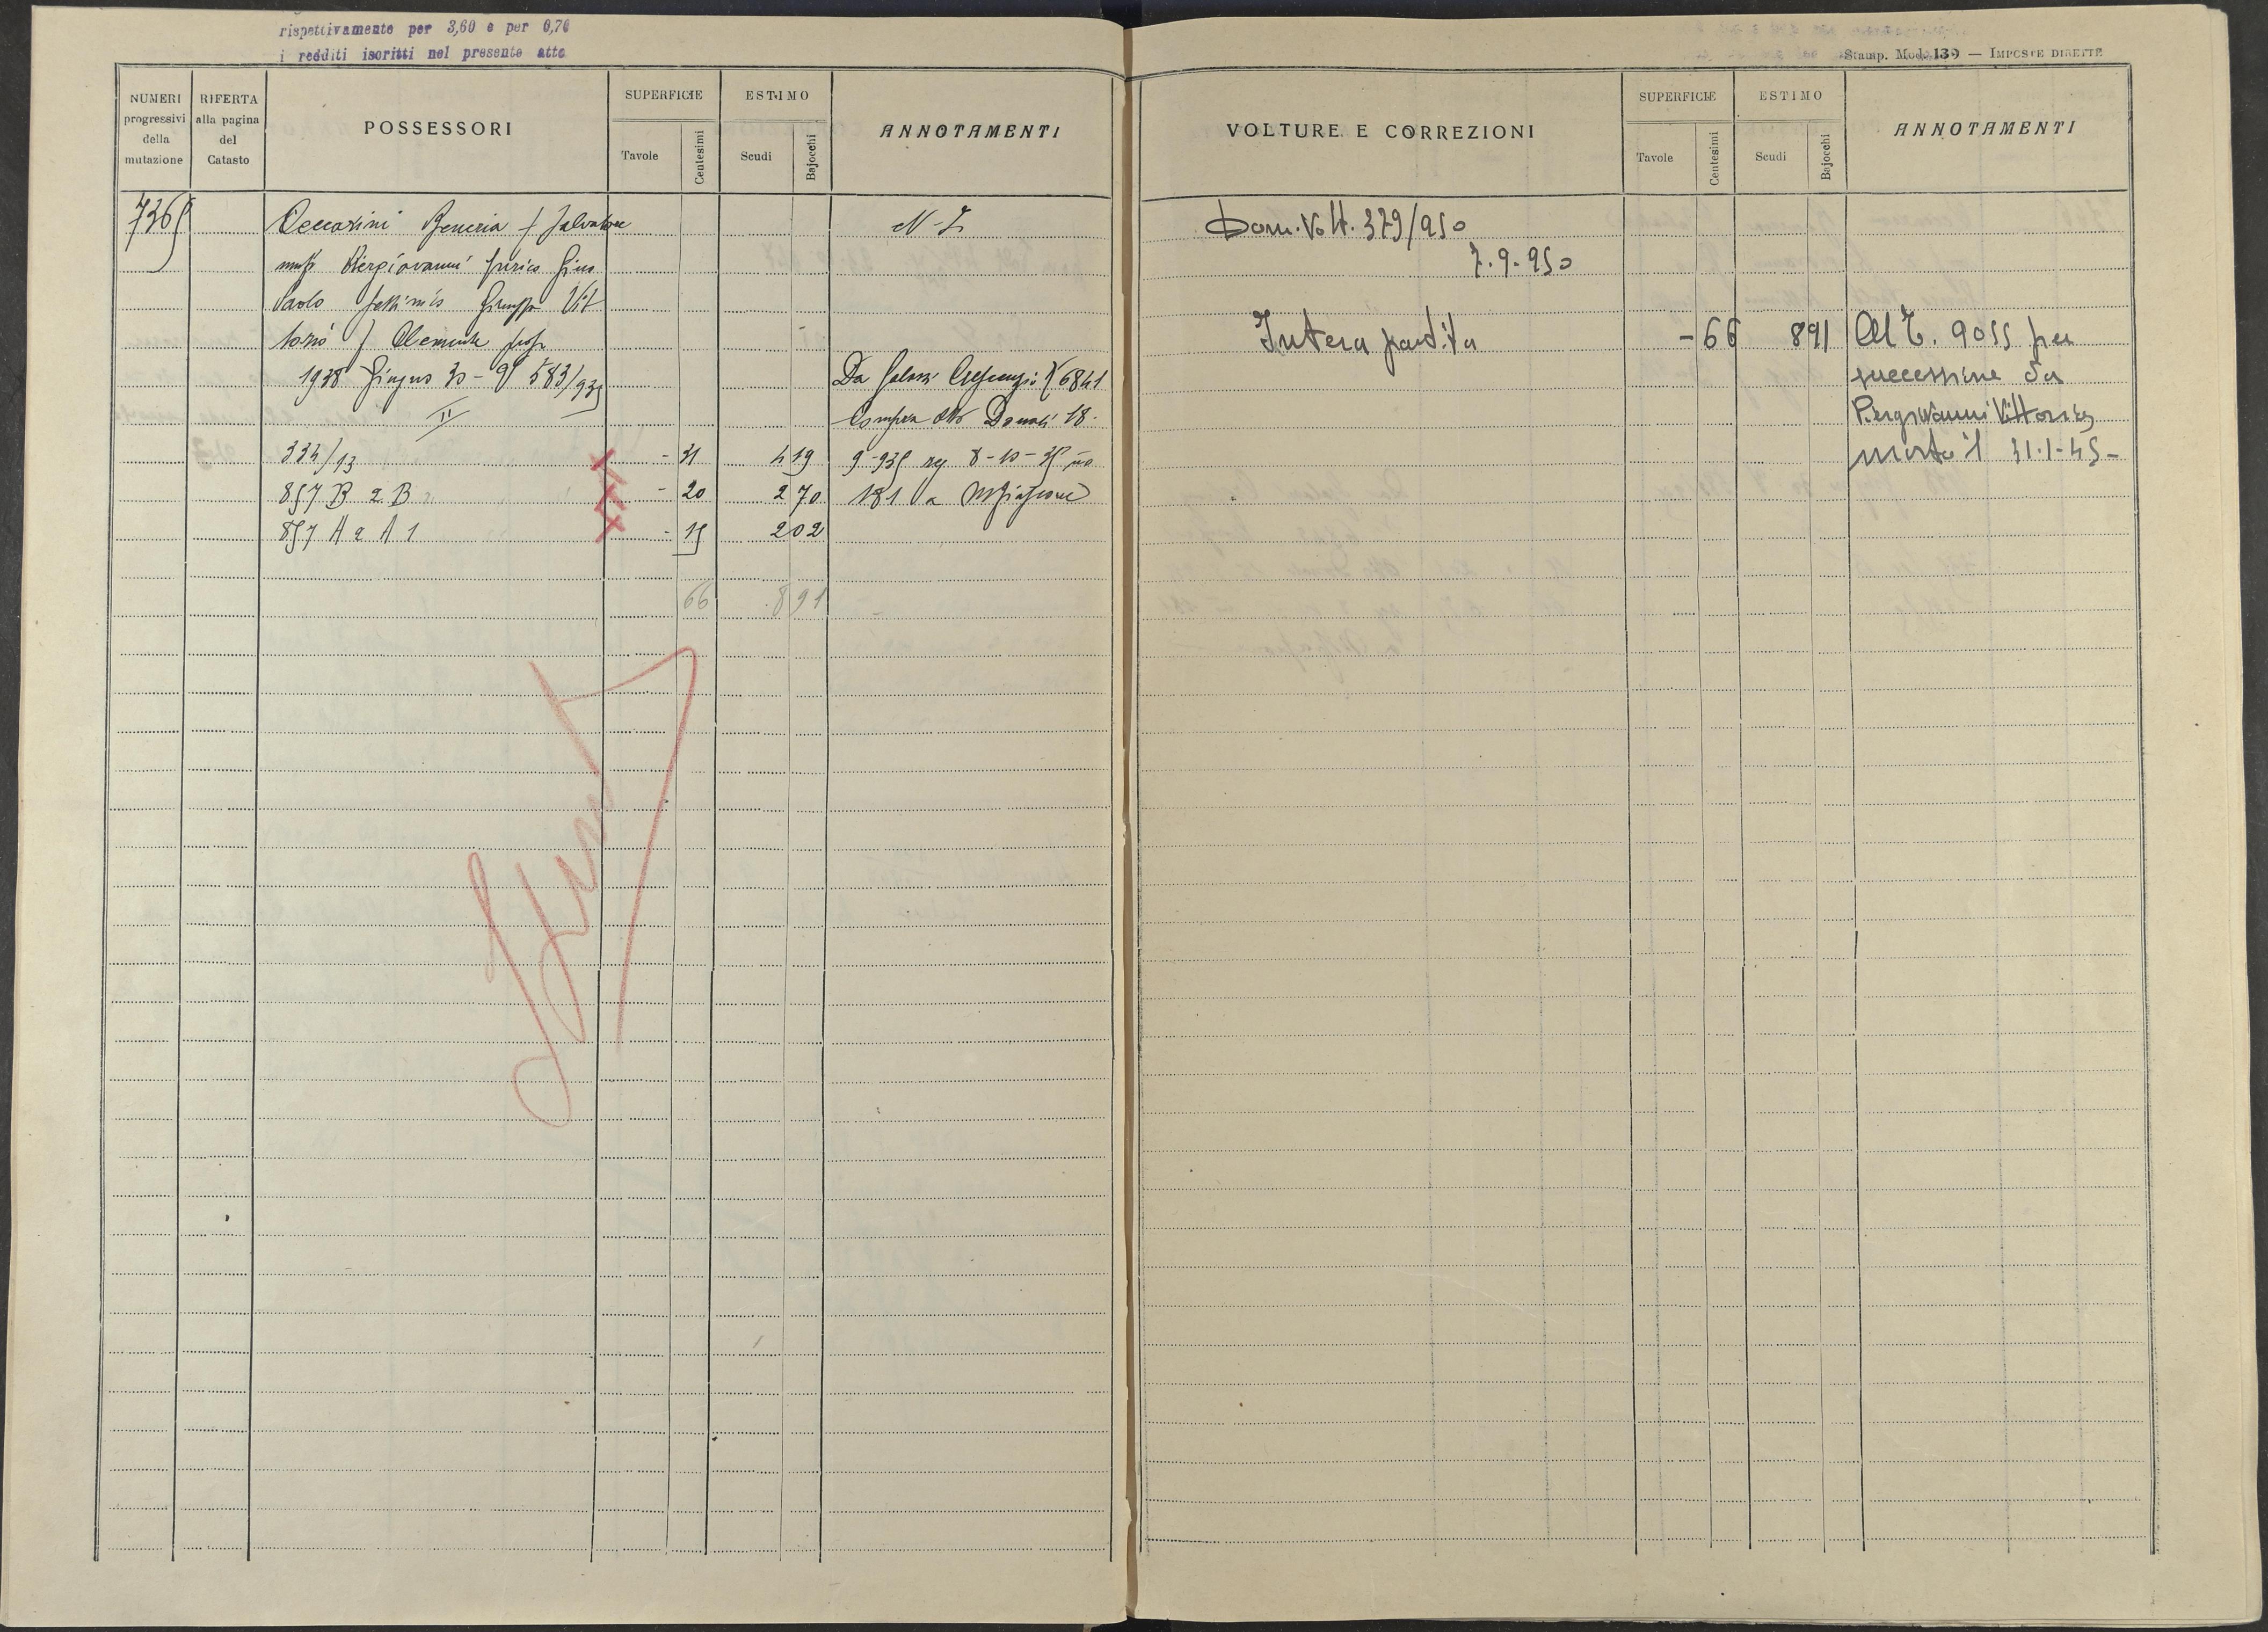 rispettivamente per 3,60 e per 0,70
i redditi iscritti nel presente atto
NUMERI
progressivi
della
mutazione
RIFERTA
alla pagina
del
Catasto
POSSESSORI
SUPERFICIE
Tavole
Centesimi
ESTIMO
Scudi
Bajocchi
ANNOTAMENTI
7365
Ceccarini
Salvatore
N-I
Piergiovanni
Paolo
Giuseppe Vit
torio f Clemente
1938 Giugno 30 - V 583/935
Da
6841
II
Compra atto Donati 18-
334/13 - 31 4 19
9-935 reg 8-10-35 no
857 B 2 B - 20 2 70
181 a
857 A 2 A 1 - 15 2 02
66 8 91
Stamp. Mod. 139 — IMPOSTE DIRETTE
VOLTURE E CORREZIONI
SUPERFICIE
Tavole
Centesimi
ESTIMO
Scudi
Bajocchi
ANNOTAMENTI
Dom. Volt. 379/950
7.9.950
Intera partita - 66 891
Al T. 9055 per
successione da
Piergiovanni Vittorio,
morto il 31-1-45-